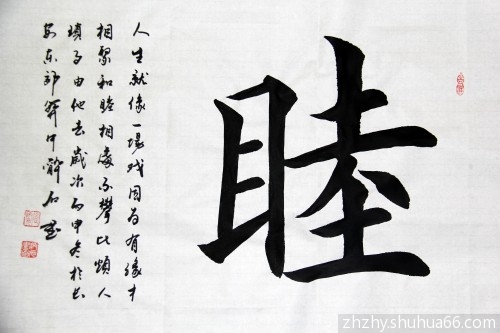 睦
人生就像一場戏因为有缘才
相聚和睦相處不攀比煩人
瑣事由他去歲次丙申冬於
安东 中 石
zhzhy.shuhua66.com